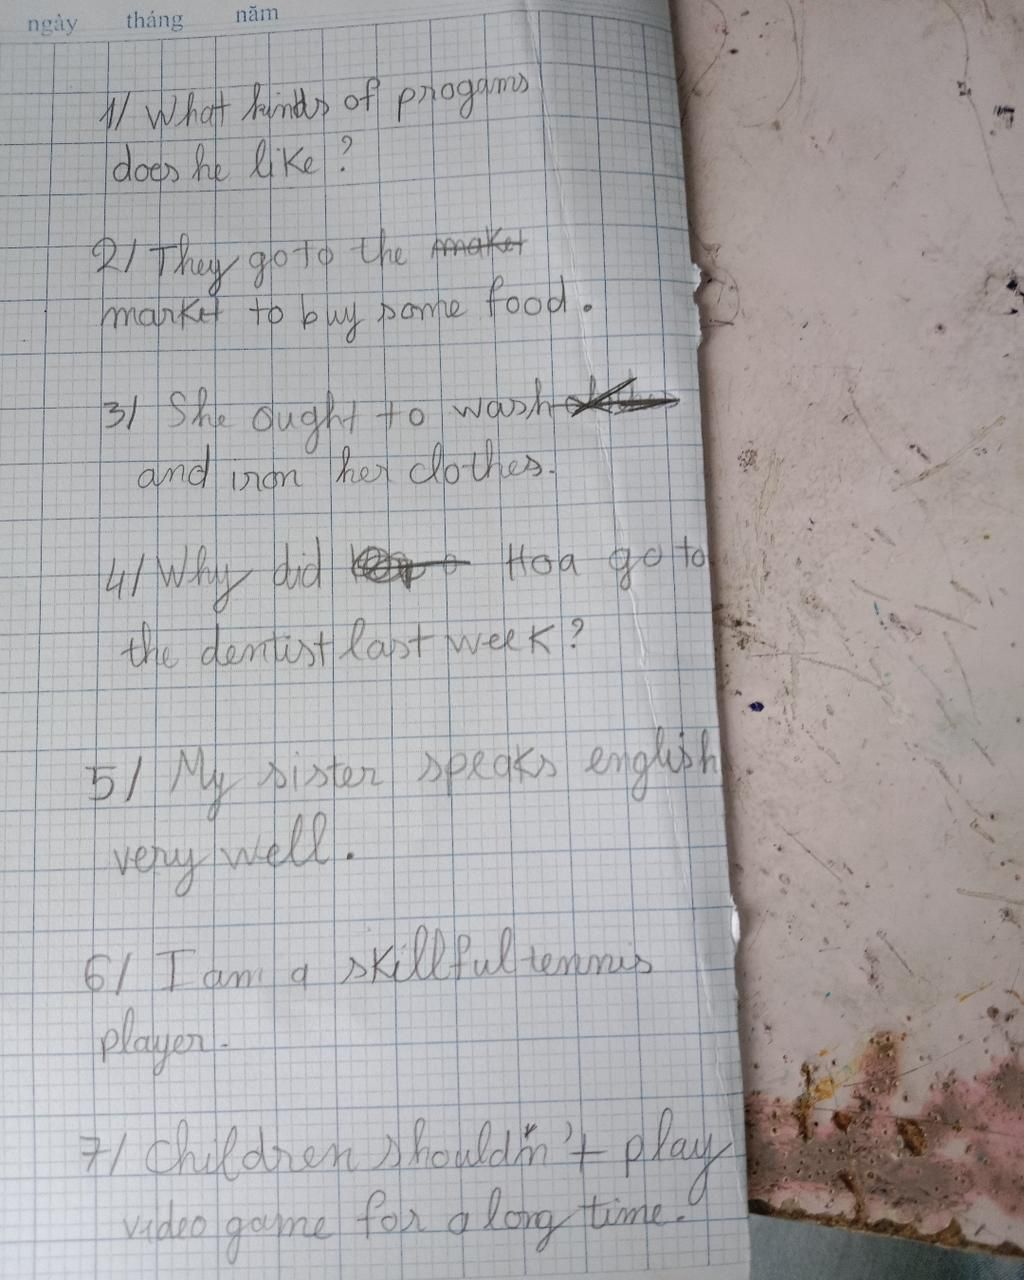 ngày tháng năm
1/ What kinds of progams
does he like ?
2/ They go to the maket
market to buy some food.
3/ She ought to wash
and iron her clothes.
4/ Why did Hoa go to
the dentist last week?
5/ My sister speaks english
very well.
6/ I am a skillful tennis
player.
7/ Children shouldn't play
video game for a long time.